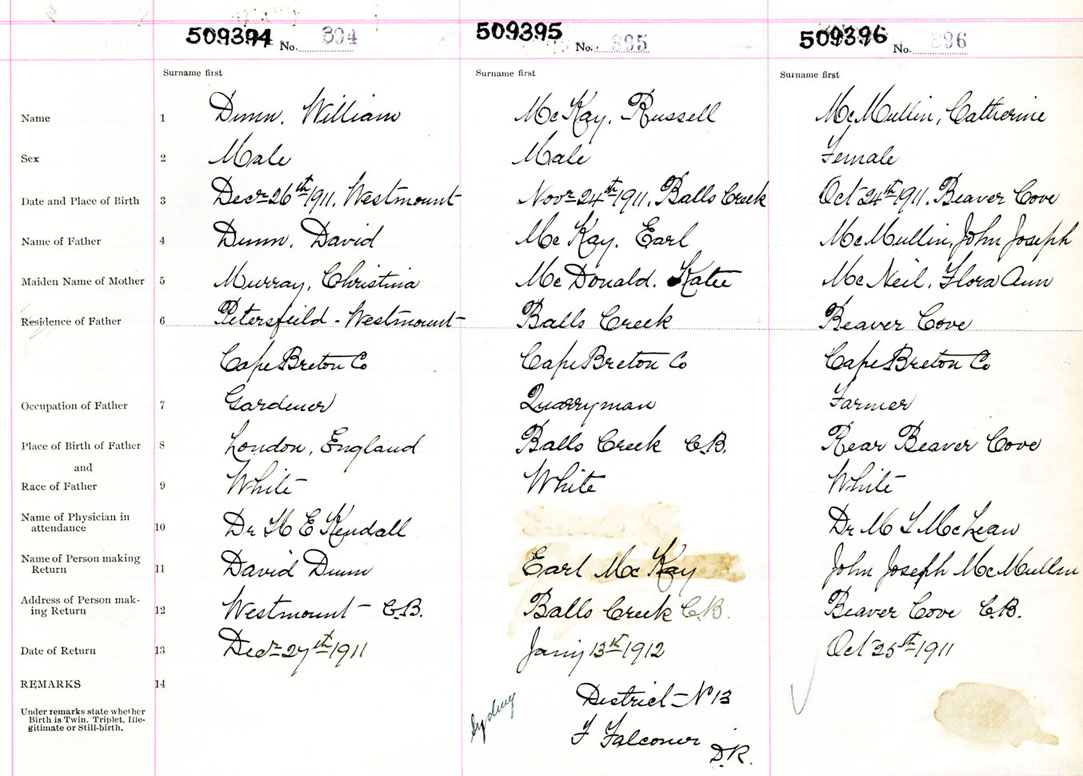 509394 No. 394 509395 No. 395 509396 No. 396
Surname first Surname first Surname first
Name 1 Dunn, William McKay, Russell McMullin, Catherine
Sex 2 Male Male Female
Date and Place of Birth 3 Decr 26th 1911, Westmount Novr 24th 1911, Balls Creek Oct 24th 1911, Beaver Cove
Name of Father 4 Dunn, David McKay, Earl McMullin, John Joseph
Maiden Name of Mother 5 Murray, Christina McDonald, Katie McNeil, Flora Ann
Residence of Father 6 Petersfield - Westmount Balls Creek Beaver Cove
Cape Breton Co Cape Breton Co Cape Breton Co
Occupation of Father 7 Gardener Quarryman Farmer
Place of Birth of Father 8 London, England Balls Creek C.B. Rear Beaver Cove
and
Race of Father 9 White White White
Name of Physician in
attendance 10 Dr H E Kendall Dr M McLean
Name of Person making
Return 11 David Dunn Earl McKay John Joseph McMullin
Address of Person mak-
ing Return 12 Westmount - C.B. Balls Creek C.B. Beaver Cove C.B.
Date of Return 13 Decr 27th 1911 Jany 13th 1912 Oct 25th 1911
REMARKS 14 District - No 13
Under remarks state whether
Birth is Twin, Triplet, Ille-
gitimate or Still-birth.
Sydney
F Falconer
D.R.